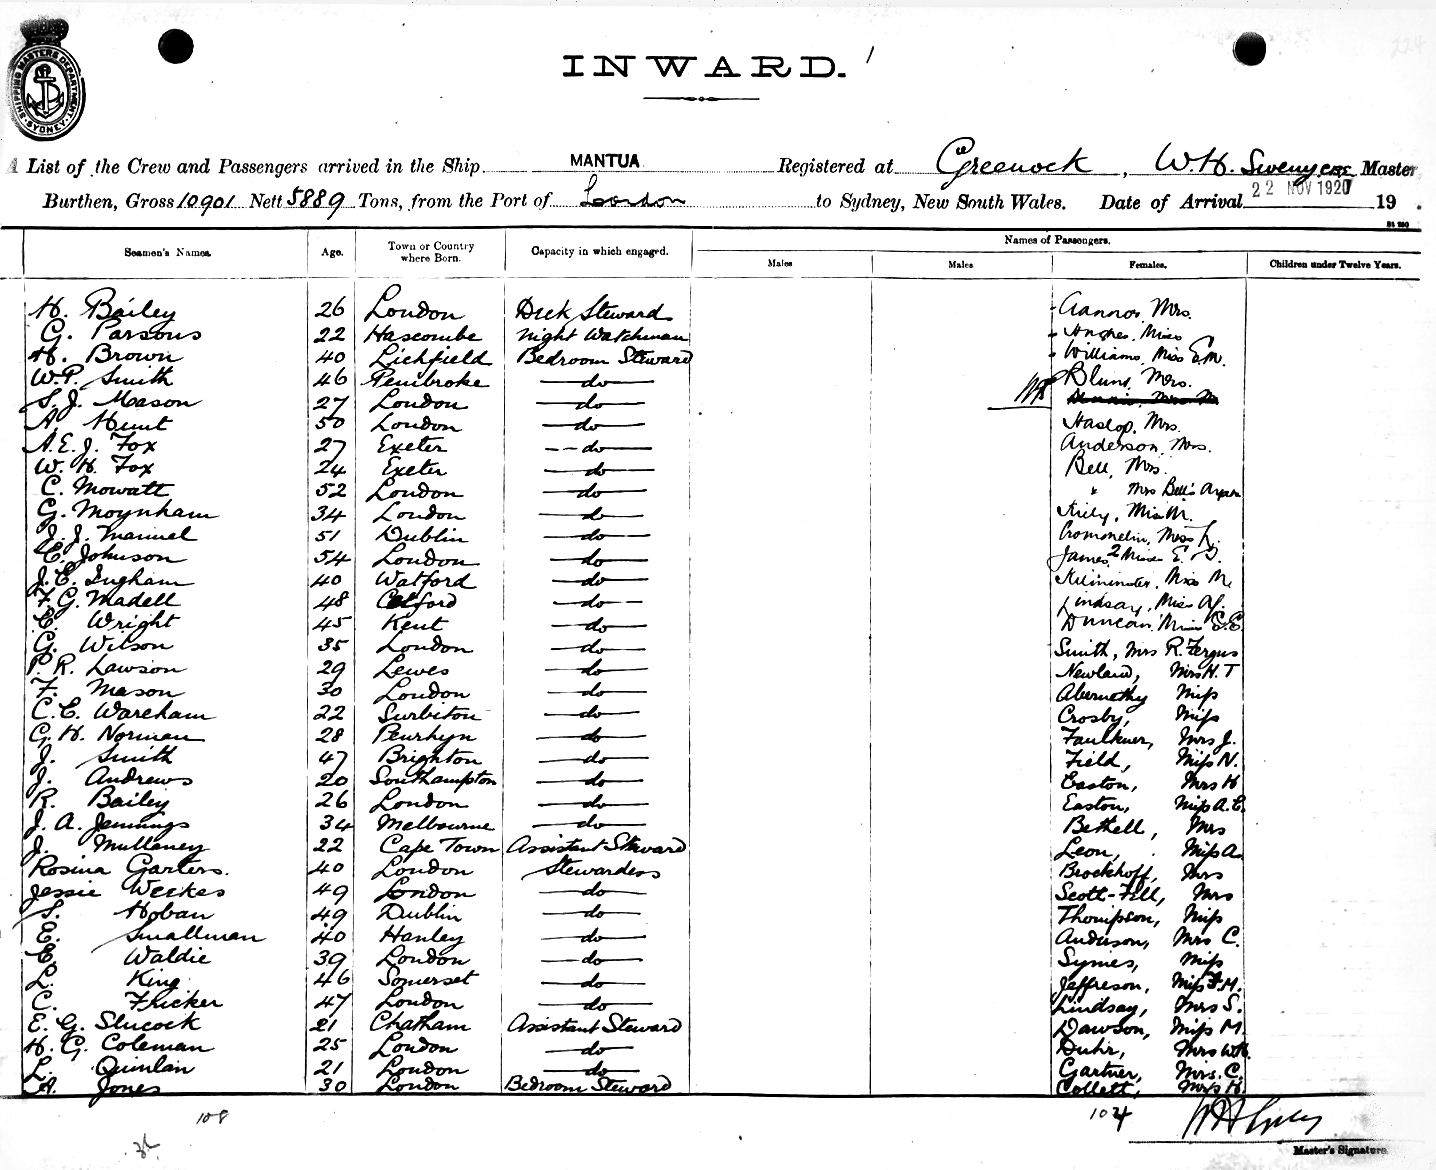 SHIPPING MASTERS DEPARTMENT
SYDNEY
INWARD.
List of the Crew and Passengers arrived in the Ship MANTUA Registered at Greenock, W.H. Master
Burthen, Gross 10901 Nett 5889 Tons, from the Port of London to Sydney, New South Wales. Date of Arrival 22 NOV 1920 19
Names of Passengers.
Seamen's Names. Age. Town or Country where Born. Capacity in which engaged. Males Males Females. Children under Twelve Years.
H. Bailey 26 London Deck Steward Mrs.
G. Parsons 22 Hascombe Night Watchman Miss
H. Brown 40 Lichfield Bedroom Steward Williams, Miss E.M.
W.P. Smith 46 Pembroke do Mrs.
S. J. Mason 27 London do
A. Hunt 50 London do Haslop, Mrs.
A. E. J. Fox 27 Exeter do Anderson, Mrs.
W. H. Fox 24 Exeter do Bell, Mrs.
C. Mowatt 52 London do " Mrs Bell's
G. Moynham 34 London do Miss M.
J. J. Manuel 51 Dublin do Crommelin, Miss L.
E. Johnson 54 London do James, 2 Misses E.
J. E. Ingham 40 Watford do Kilminster, Miss M.
F. G. Madell 48 do Lindsay, Miss
E. Wright 45 Kent do Duncan, Miss E.E.
G. Wilson 35 London do Smith, Mrs R. Fergus
P. R. Lawson 29 Lewes do Newland, Mrs H. T
F. Mason 30 London do Abernethy Miss
C. E. Wareham 22 Surbiton do Crosby, Miss
G. H. Norman 28 Penrhyn do Faulkner, Mrs J.
J. Smith 47 Brighton do Field, Miss N.
J. Andrews 20 Southampton do Easton, Mrs H
R. Bailey 26 London do Easton, Miss A. E.
J. A. Jennings 34 Melbourne do Bethell, Mrs
J. Mullaney 22 Cape Town Assistant Steward Leon, Miss A.
Rosina Garters. 40 London Stewardess Brockhoff, Mrs
Jessie Weekes 49 London do Scott-Fell, Mrs
S. Hoban 49 Dublin do Thompson, Miss
E. Smallman 40 Hanley do Anderson, Mrs C.
E. Waldie 39 London do Symes, Miss
L. King 46 Somerset do Jeffreson, Miss F. M.
C. Fricker 47 London do Lindsay, Mrs S.
E. G. Slucock 21 Chatham Assistant Steward Dawson, Miss M.
H. G. Coleman 25 London do Duhr, Mrs W.H.
L. Quinlan 21 London do Gartner, Mrs. C.
A. Jones 30 London Bedroom Steward Collett, Mrs H.
108 104
Master's Signature.